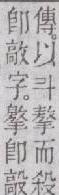 傳。以斗摮而殺
卽敲字。擊卽毃